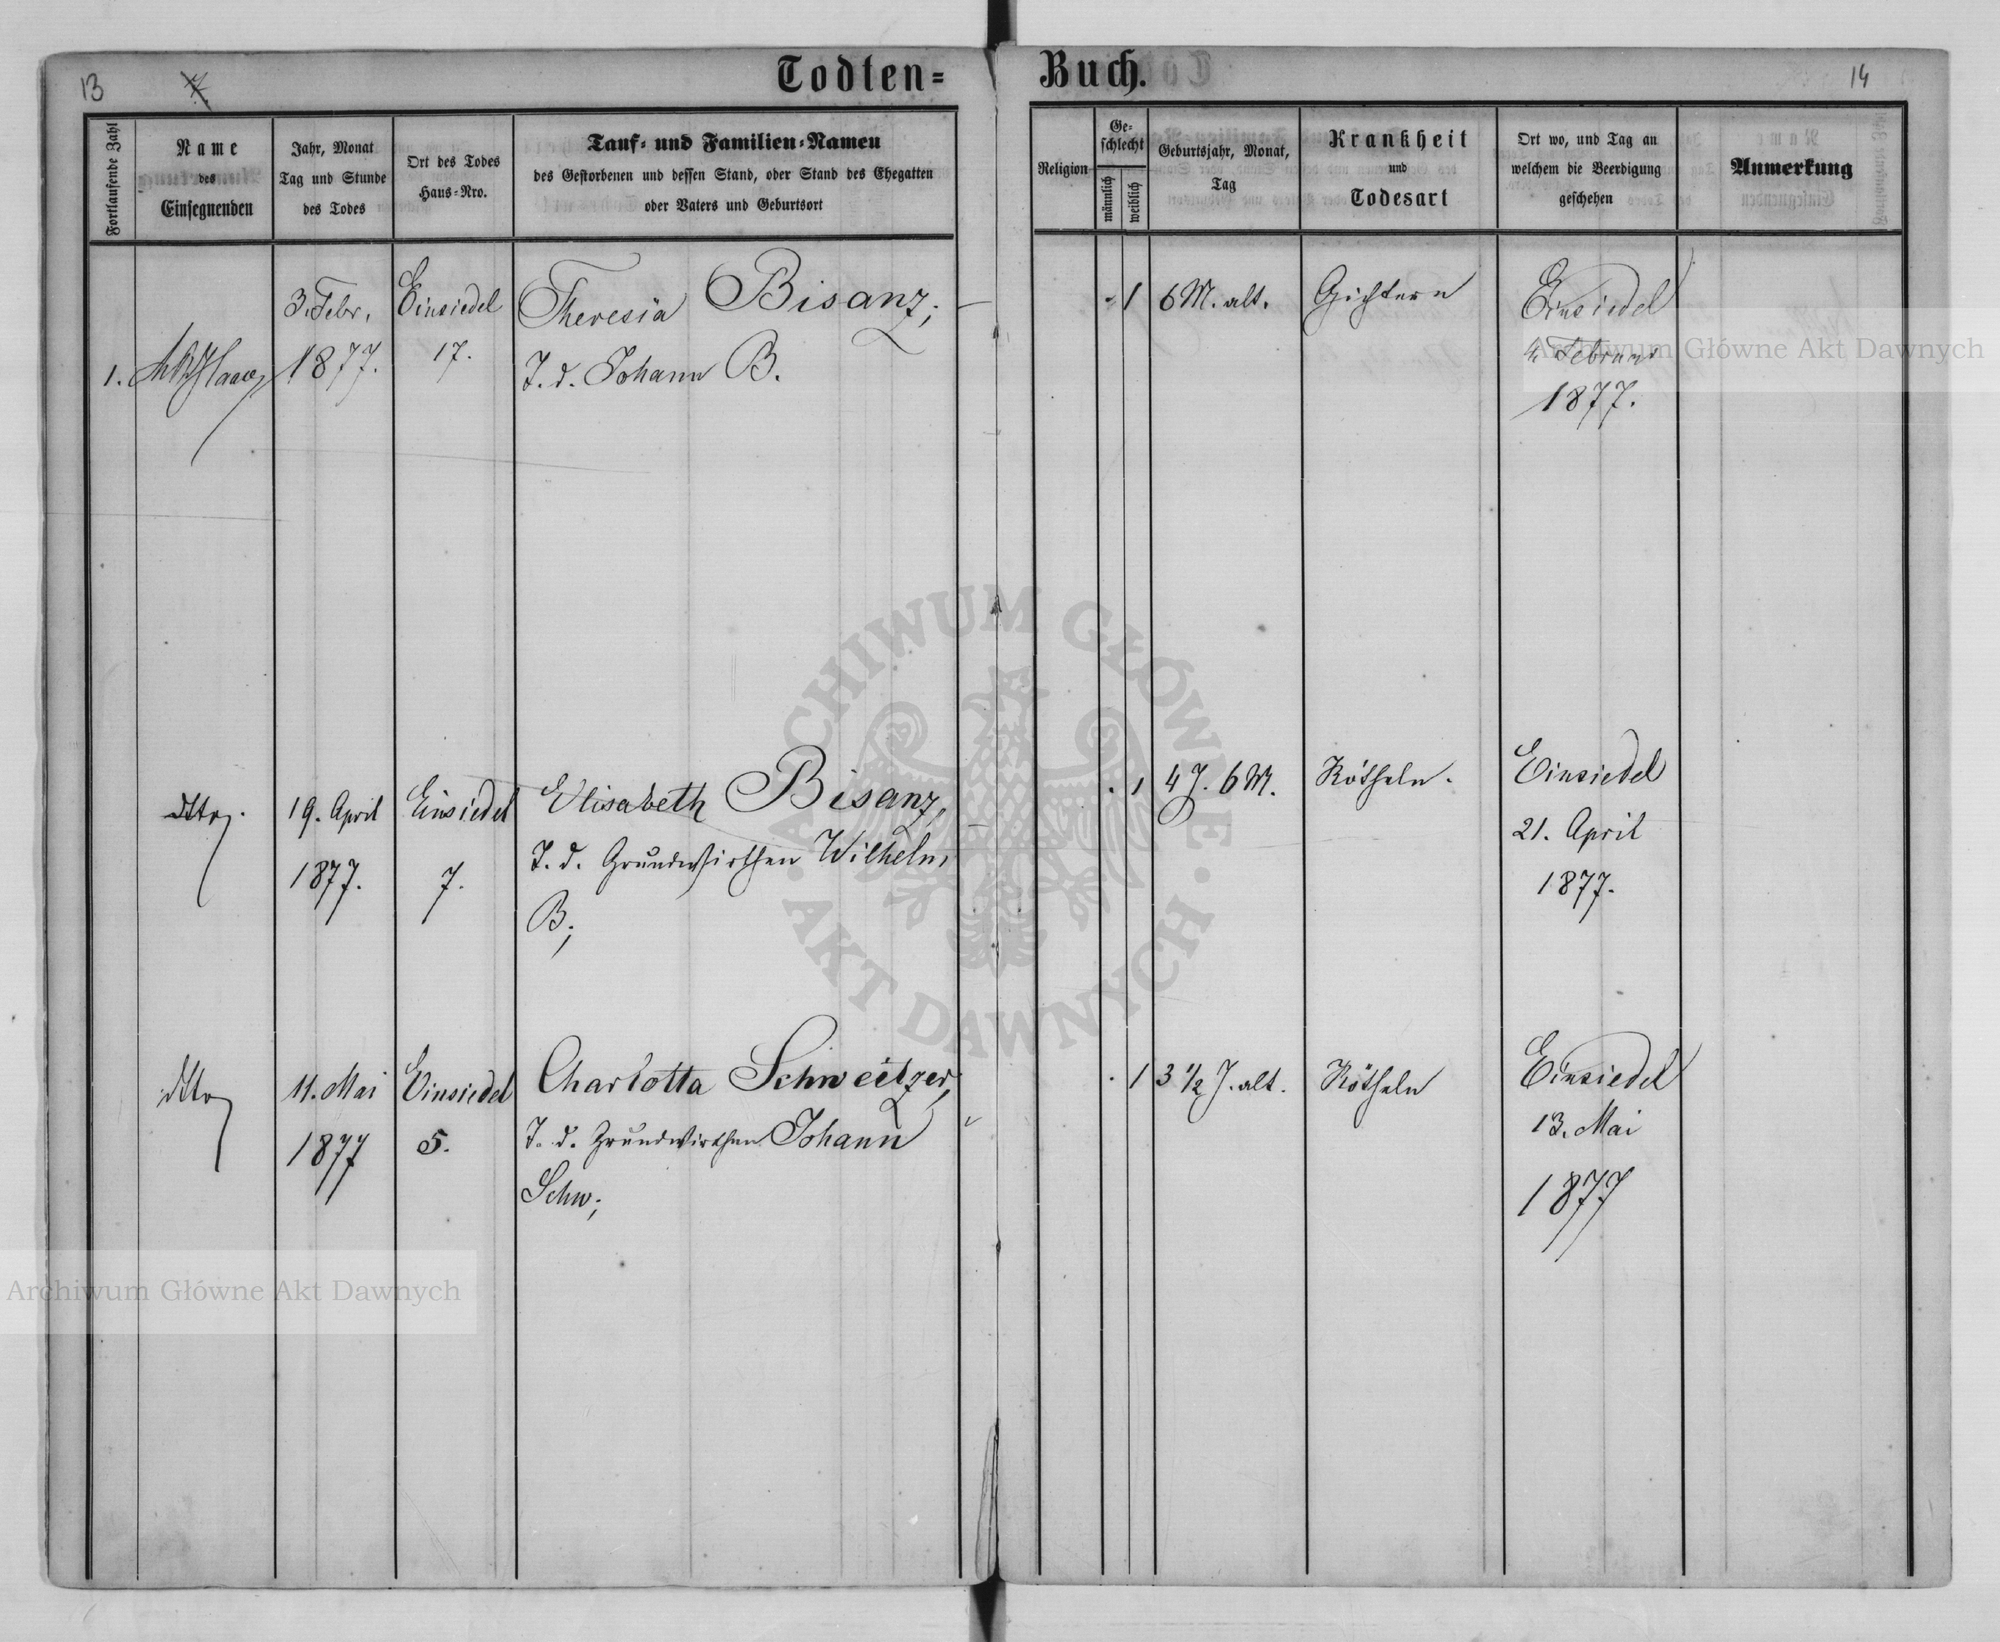 13
14
Todten= Buch.
Fortlaufende Zahl
Name
des
Einsegnenden
Jahr, Monat
Tag und Stunde
des Todes
Ort des Todes
Haus=Nro.
Tauf= und Familien=Namen
des Gestorbenen und dessen Stand, oder Stand des Ehegatten
oder Vaters und Geburtsort
Religion
Ge=
schlecht
männlich
weiblich
Geburtsjahr, Monat,
Tag
Krankheit
und
Todesart
Ort wo, und Tag an
welchem die Beerdigung
geschehen
Anmerkung
1.
3. Febr.
1877.
Einsiedel
17.
Theresia Bisanz;
T. d. Johann B.
1
6 M. alt.
Gichtern
Einsiedel
4. Februar
1877.
dtto.
19. April
1877.
Einsiedel
7.
Elisabeth Bisanz,
T. d. Grundwirthen Wilhelm
B;
1
4 J. 6 M.
Rötheln.
Einsiedel
21. April
1877.
dtto
11. Mai
1877
Einsiedel
5.
Charlotta Schweitzer,
T. d. Grundwirthen Johann
Schw;
1
3 1/2 J. alt.
Rötheln
Einsiedel
13. Mai
1877
Archiwum Główne Akt Dawnych
Archiwum Główne Akt Dawnych
ARCHIWUM GŁÓWNE
• AKT DAWNYCH •